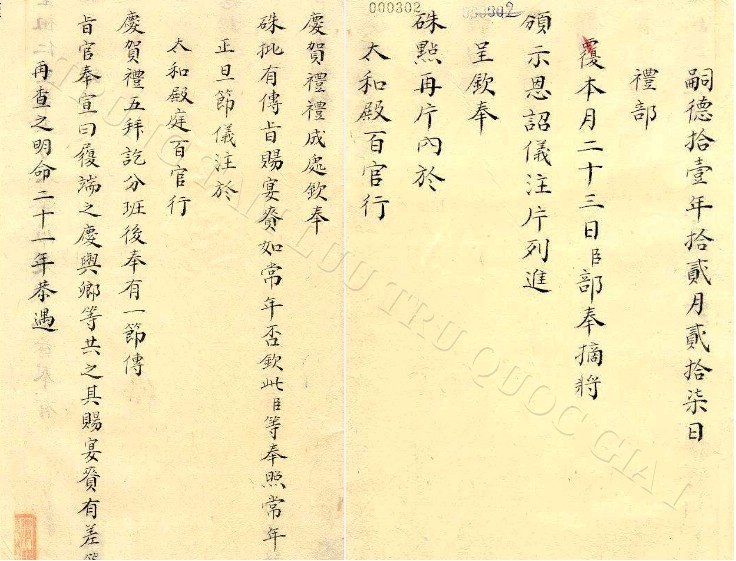 000302
302
嗣德拾壹年拾貳月貳拾柒日
禮部
覆本月二十三日臣部奉摘將
頒示恩詔儀注片列進
呈欽奉
硃點再片內於
太和殿百官行
慶賀禮禮成處欽奉
硃批有傳旨賜宴賚如常年否欽此臣等奉照常年
正旦節儀注於
太和殿庭百官行
慶賀禮五拜訖分班後奉有一節傳
旨官奉宣曰履端之慶與卿等共之其賜宴賚有差等
再查之明命二十一年恭遇
TRUNG TAM LUU TRU QUOC GIA I